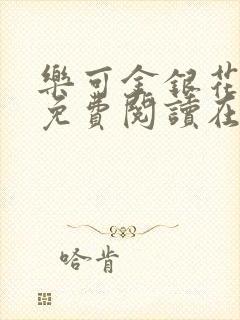 樂可金銀花
免費閱讀在
哈肯